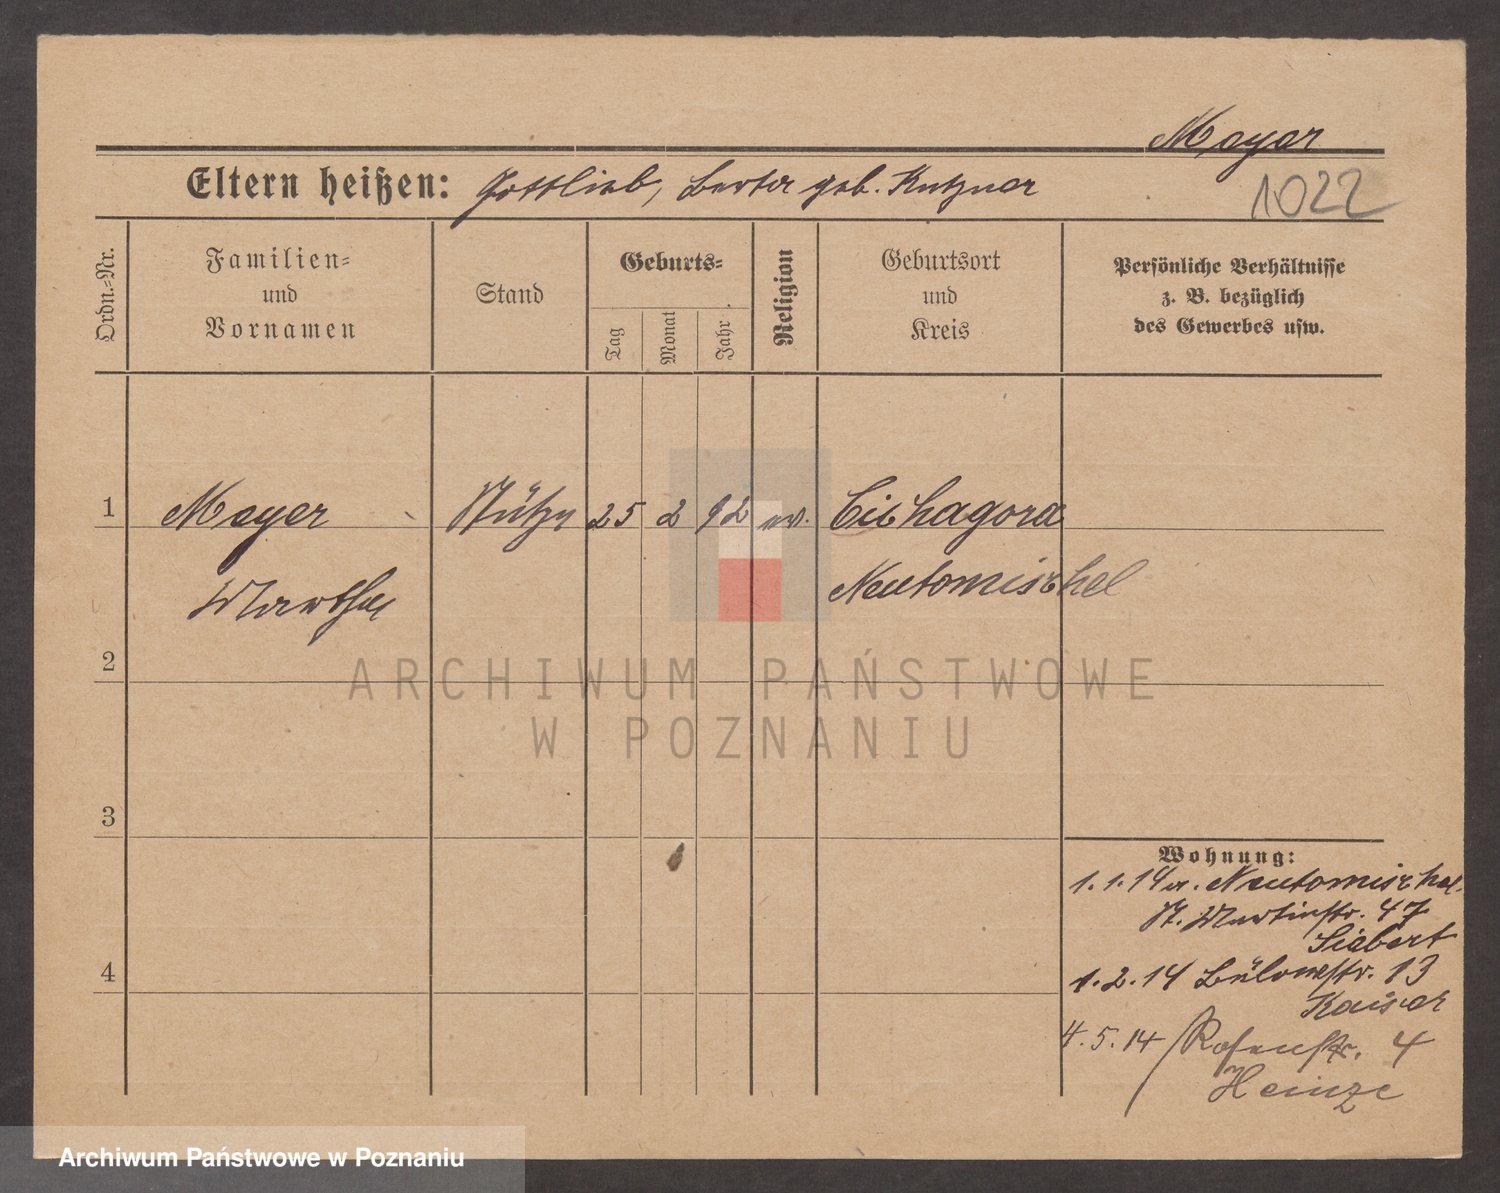 Meyer
Eltern heißen: Gottlieb, Berta geb. Kutzner
1022
Ordn.=Nr.
Familien=
und
Vornamen
Stand
Geburts=
Tag
Monat
Jahr
Religion
Geburtsort
und
Kreis
Persönliche Verhältnisse
z. B. bezüglich
des Gewerbes usw.
1 Meyer Stütze 25 2 92 ev. Cichagora
Martha Neutomischel
2
ARCHIWUM PAŃSTWOWE
W POZNANIU
3
Wohnung:
1.1.14 v. Neutomischel
St. Martinstr. 47
Siebert
4
1.2.14 Bülowstr. 13
Kaiser
4.5.14 Rosenstr. 4
Heinze
Archiwum Państwowe w Poznaniu